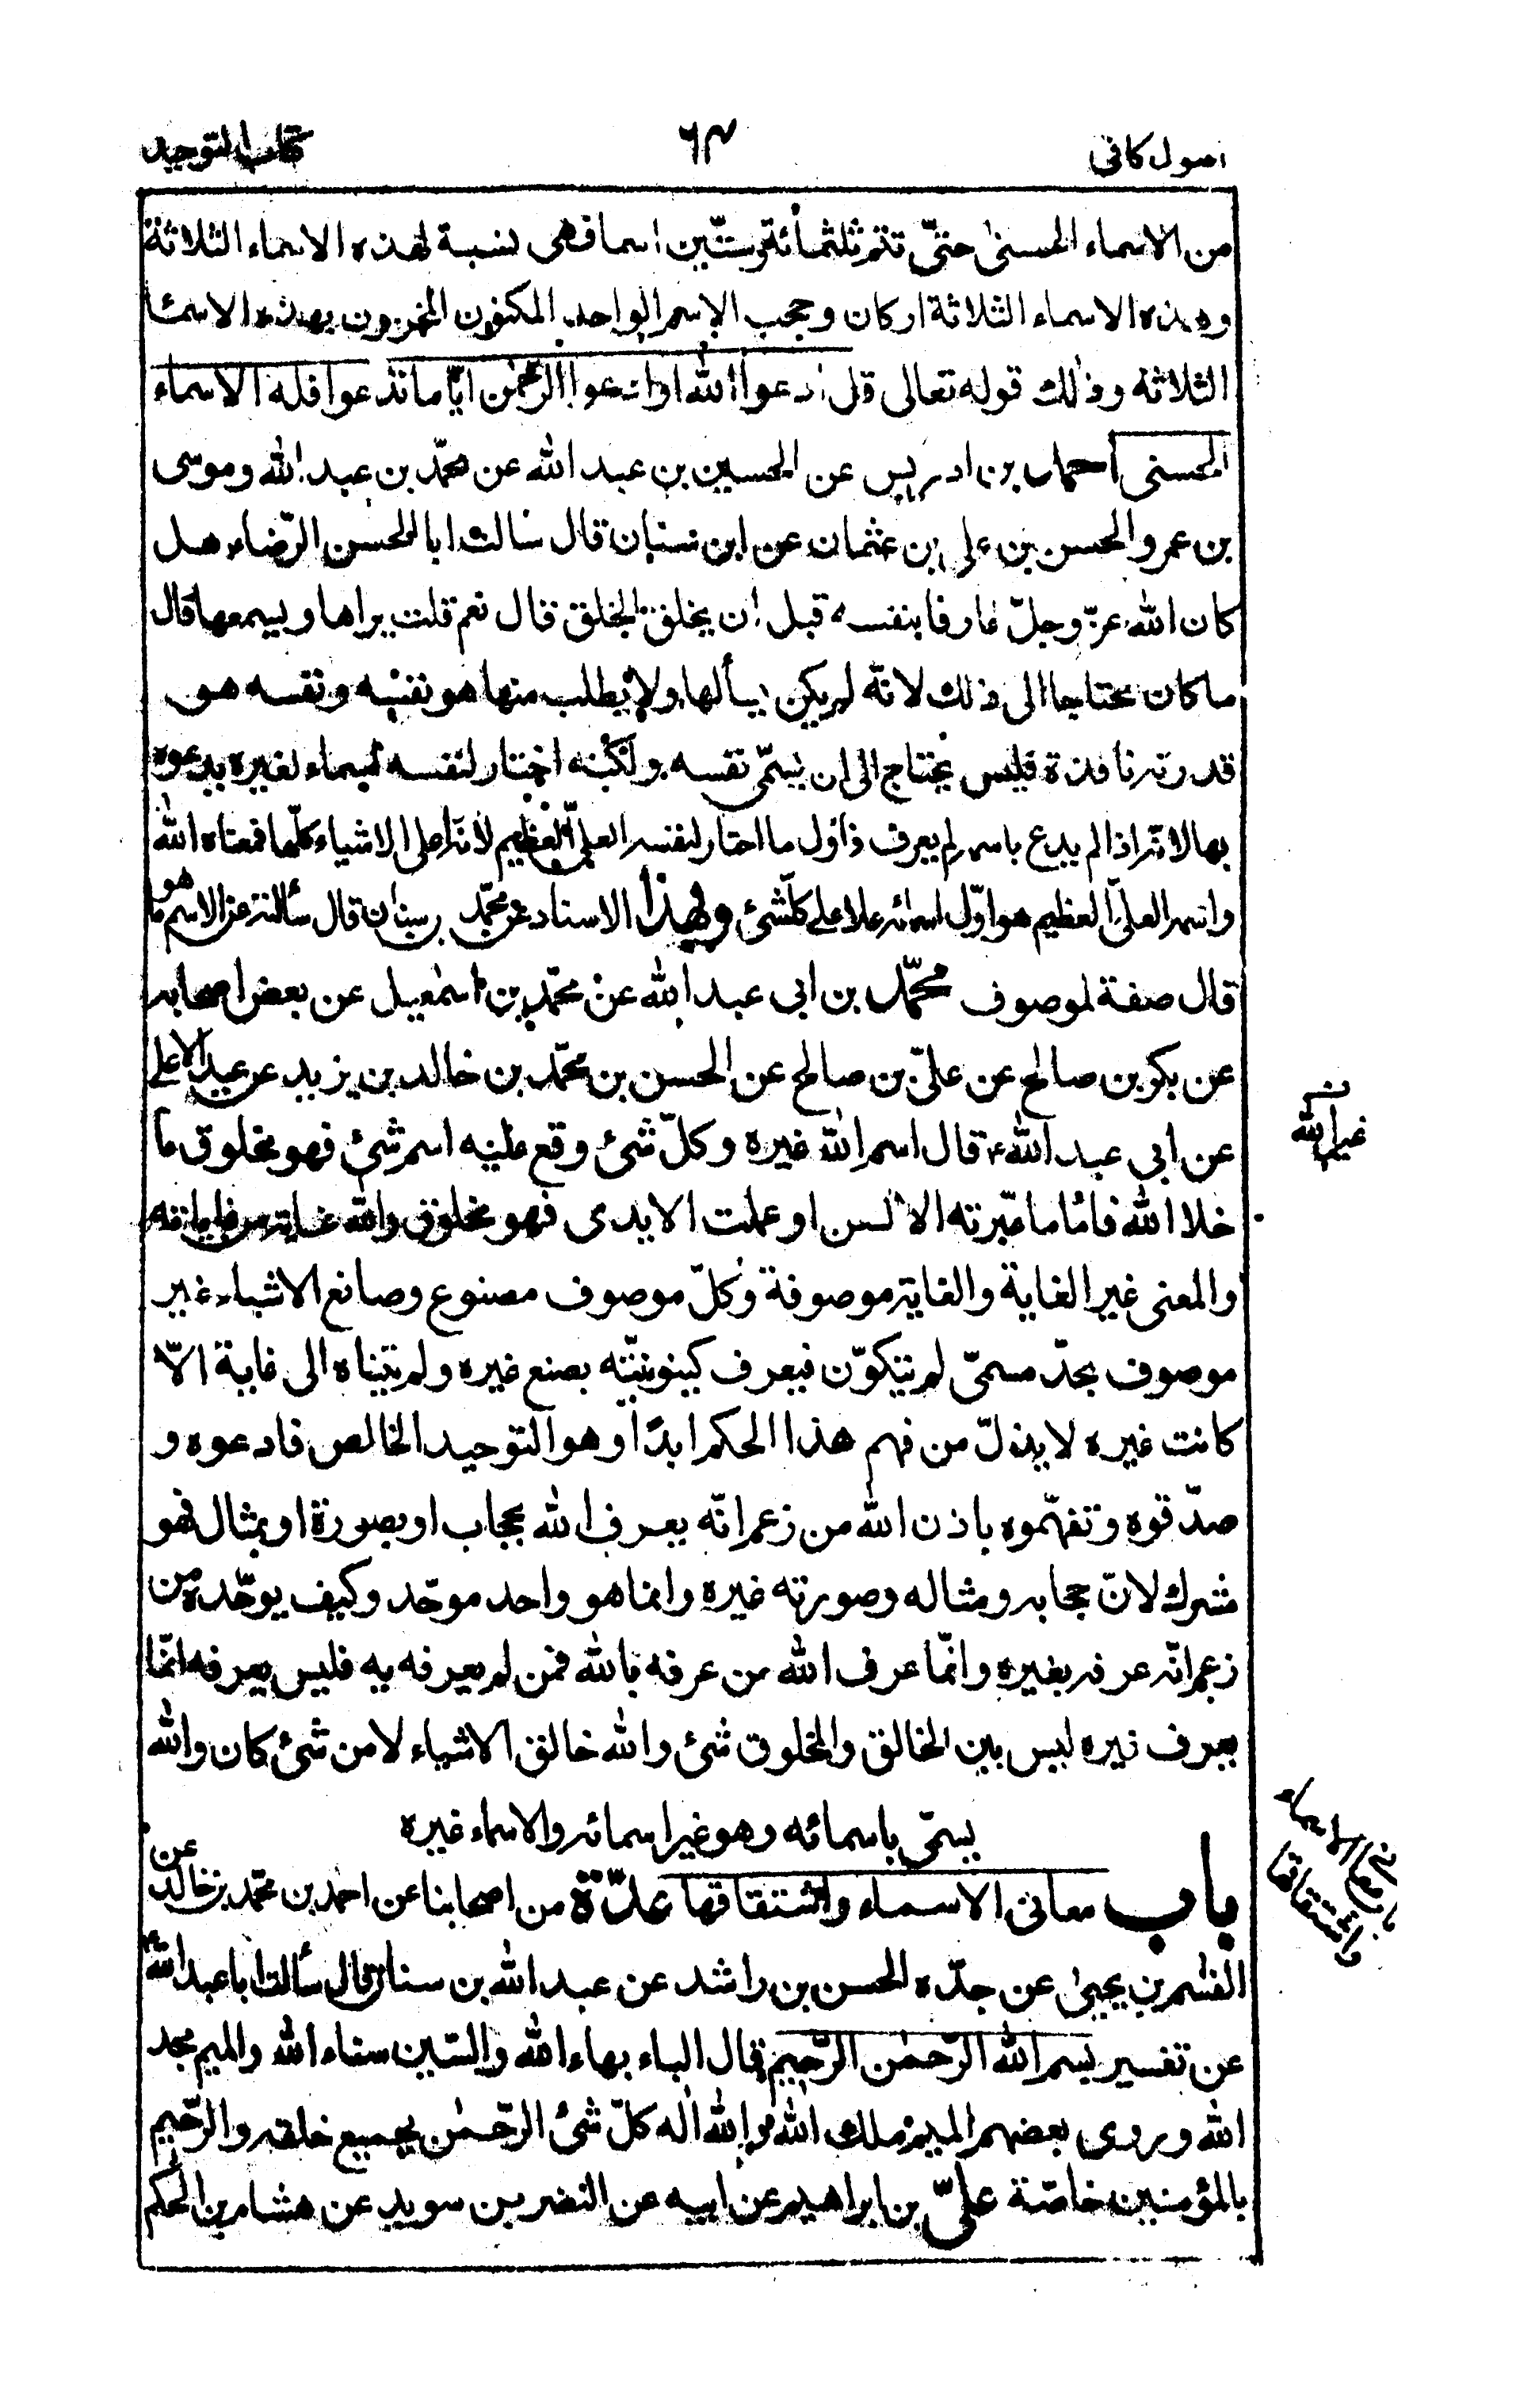 اصول كافى
٦٣
كتاب التوحيد
من الاسماء الحسنى حتّى تتم ثلثمائة وستّين اسما فهى نسبة لهذه الاسماء الثلاثة
وهذه الاسماء الثلاثة اركان وحجب الاسم الواحد المكنون المخزون بهذه الاسما
الثلاثة وذلك قوله تعالى قل ادعوا الله او ادعوا الرحمٰن ايّا ما تدعوا فله الاسماء
الحسنى احمد بن ادريس عن الحسين بن عبد الله عن محمّد بن عبد الله وموسى
بن عمر والحسن بن على بن عثمان عن ابن سنان قال سالت ابا الحسن الرّضاء هل
كان الله عزّ وجلّ عارفا بنفسه قبل ان يخلق الخلق قال نعم قلت يراها ويسمعها قال
ما كان محتاجا الى ذلك لانّه لم يكن يسألها ولا يطلب منها هو نفسه ونفسه هو
قدرته نافذة فليس يحتاج الى ان يسمّى نفسه ولكنه اختار لنفسه اسماء لغيره يدعوه
بها لانّه اذا لم يدع باسمه لم يعرف فاوّل ما اختار لنفسه العلىّ العظيم لانّه اعلى الاشياء كلّها فمعناه الله
واسمه العلىّ العظيم هو اوّل اسمائه علا على كلّ شئ وبهذا الاسناد عن محمّد بن سنان قال سألته عن الاسم ما هو
قال صفة لموصوف محمّد بن ابى عبد الله عن محمّد بن اسمٰعيل عن بعض اصحابه
عن بكر بن صالح عن علىّ بن صالح عن الحسن بن محمّد بن خالد بن يزيد عن عبد الاعلى
عن ابى عبد الله ع قال اسم الله غيره وكلّ شئ وقع عليه اسم شئ فهو مخلوق ما
غير الله
خلا الله فامّا ما عبّرته الالسن او عملت الايدى فهو مخلوق والله غاية من غاياته
والمعنى غير الغاية والغاية موصوفة وكلّ موصوف مصنوع وصانع الاشياء غير
موصوف بحدّ مسمّى لم يتكوّن فيعرف كينونيّته بصنع غيره ولم يتناه الى غاية الّا
كانت غيره لا يذلّ من فهم هذا الحكم ابدًا وهو التوحيد الخالص فادعوه و
صدّقوه وتفهّموه باذن الله من زعم انّه يعرف الله بحجاب او بصورة او بمثال فهو
مشرك لانّ حجابه ومثاله وصورته غيره وانما هو واحد موحّد وكيف يوحّده من
زعم انّه عرفه بغيره وانّما عرف الله من عرفه بالله فمن لم يعرفه به فليس يعرفه انّما
يعرف غيره ليس بين الخالق والمخلوق شئ والله خالق الاشياء لا من شئ كان والله
يسمّى باسمائه وهو غير اسمائه والاسماء غيره
باب معانى الاسماء واشتقاقها عدّة من اصحابنا عن احمد بن محمّد بن خالد عن
باب معانى الاسماء
واشتقاقها
القٰسم بن يحيىٰ عن جدّه الحسن بن راشد عن عبد الله بن سنان قال سألت ابا عبد الله ع
عن تفسير بسم الله الرّحمٰن الرّحيم قال الباء بهاء الله والسّين سناء الله والميم مجد
الله وروى بعضهم الميم ملك الله والله اله كلّ شئ الرّحمٰن بجميع خلقه والرّحيم
بالمؤمنين خاصّة علىّ بن ابراهيم عن ابيه عن النضر بن سويد عن هشام بن الحكم